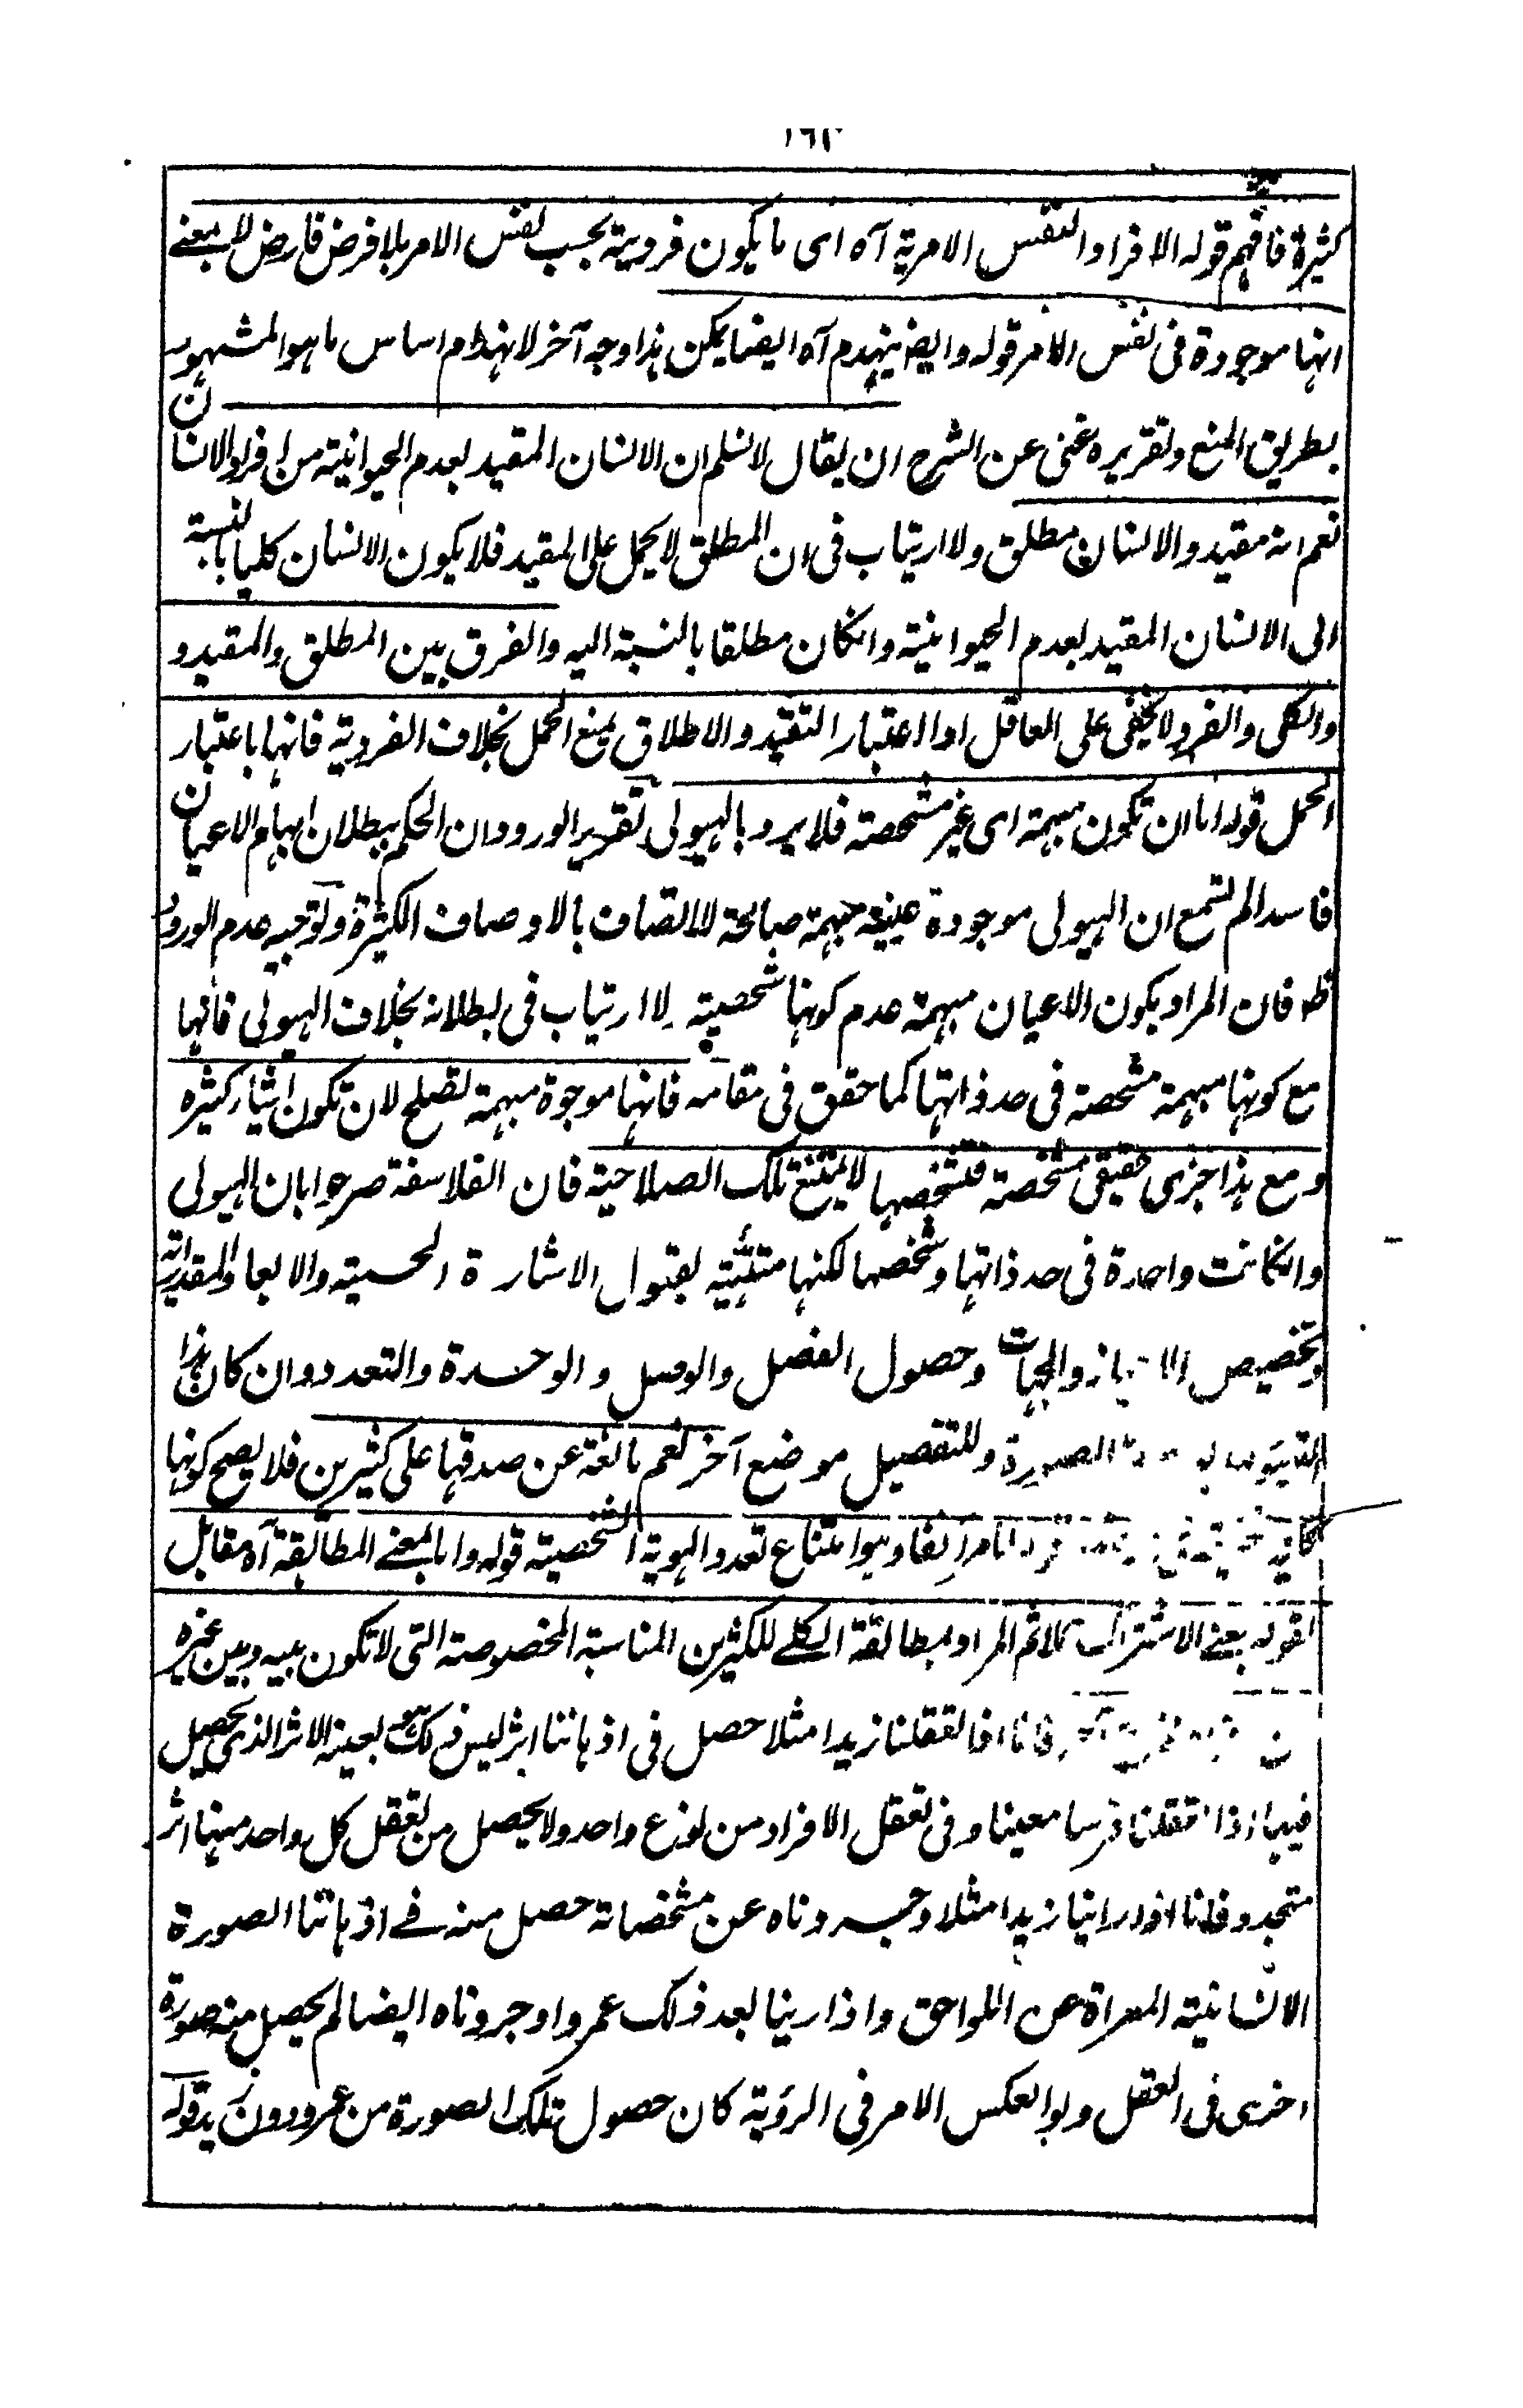 ١٦٣
كثيرة فافهم قوله الافراد النفس الامرية آه اى ما يكون فرديته بحسب نفس الامر بلا فرض فارض لا بمعنے
انها موجودة فى نفس الامر قوله وايضا ينهدم آه ايضا يمكن هذا وجه آخر لانهدام اساس ما هو المشهور
بطريق المنع وتقريره غنى عن الشرح ان يقال لا نسلم ان الانسان المقيد بعدم الحيوانية من افراد الانسان
نعم انه مقيد والانسان مطلق ولا ارتياب فى ان المطلق لا يحمل على المقيد فلا يكون الانسان كليا بالنسبة
الى الانسان المقيد بعدم الحيوانية وانكان مطلقا بالنسبة اليه والفرق بين المطلق والمقيد و
والكلى والفرد لا يخفى على العاقل اذ اعتبار التقيد والاطلاق يمنع الحمل بخلاف الفردية فانها باعتبار
الحمل قوله اما ان تكون مبهمة اى غير مشخصة فلا يرد بالهيولى تقرير الورود ان الحكم ببطلان ابهام الاعيان
فاسد الم تسمع ان الهيولى موجودة عينية مبهمة صالحة للاتصاف بالاوصاف الكثيرة وتوجيه عدم الورود
ظ فان المراد بكون الاعيان مبهمة عدم كونها شخصية لا ارتياب فى بطلانه بخلاف الهيولى فانها
مع كونها مبهمة مشخصة فى حد ذاتها كما حقق فى مقامه فانها موجوة مبهمة تصلح لان تكون اشياء كثيره
ومع هذا جزى حقيقى مشخصة فتشخصها لا يمتنع تلك الصلاحية فان الفلاسفة صرحوا بان الهيولى
وانكانت واحدة فى حد ذاتها وشخصها لكنها متهيئة لقبول الاشارة الحسية والابعاد المقدارية
وتخصيص الاحياز والجهات وحصول الفصل والوصل والوحدة والتعدد وان كان هذا
الصورة وللتفصيل موضع آخر نعم مانعة عن صدقها على كثيرين فلا يصح كونها
وهو امتناع تعدد الهوية الشخصية قوله واما بالمعنے المطابقة آه مقابل
لقوله بمعنے الاشتراك ثم المراد بمطابقة الكلے للكثيرين المناسبة المخصوصة التى لا تكون بينه وبين غيره
فانا اذا تعقلنا زيدا مثلا حصل فى اذهاننا اثر ليس ذلك هو بعينه الاثر الذى يحصل
فيها اذا تعقلنا فرسا معينا وفى تعقل الافراد من نوع واحد ولا يحصل من تعقل كل واحد منها اثر
متجدد فانا اذا راينا زيدا مثلا وجردناه عن مشخصاته حصل منه فے اذهاننا الصورة
الانسانية المعراة عن اللواحق واذا رينا بعد ذلك عمروا وجردناه ايضا لم يحصل منه صورة
اخرى فى العقل ولو انعكس الامر فى الرؤية كان حصول تلك الصورة من عمرو دون زيد قوله